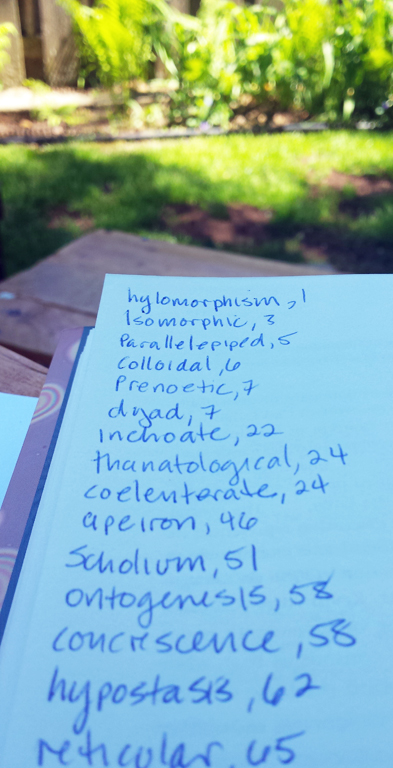 hylomorphism, 1
Isomorphic, 3
Parallelepiped, 5
Colloidal, 6
Prenoetic, 7
dyad, 7
Inchoate, 22
thanatological, 24
coelenterate, 24
apeiron, 46
Scholium, 51
ontogenesis, 58
concrescence, 58
hypostasis, 62
reticular, 65